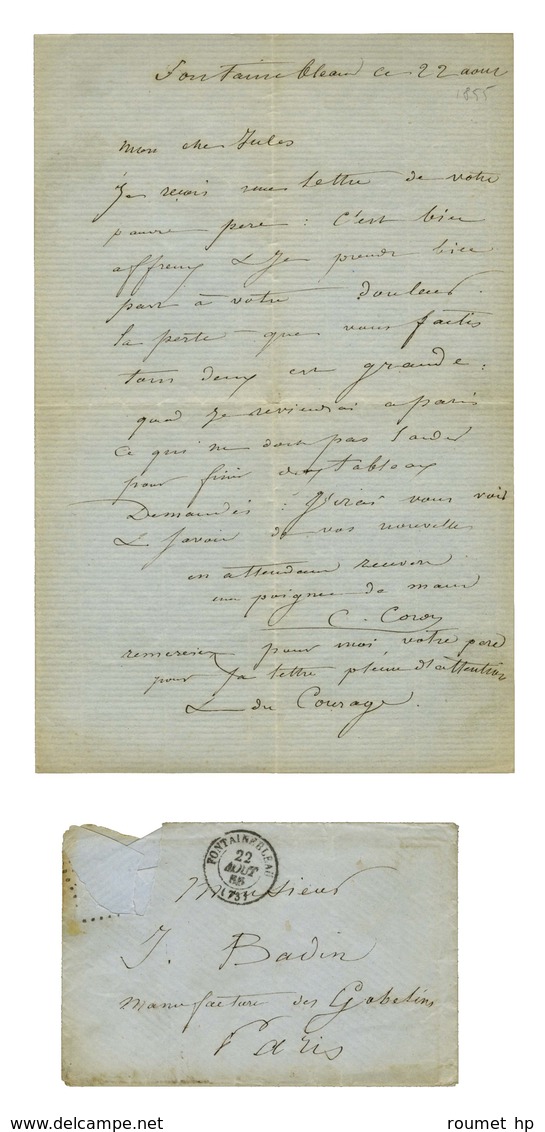 Fontainebleau ce 22 aout
1855
mon cher Jules
Je reçois une lettre de votre
pauvre pere : c'est bien
affreux & Je prends bien
part à votre douleur.
la perte que vous faites
tous deux est grande :
quad Je reviendrai a paris
ce qui ne doit pas tarder
pour finir des tableaux
Demandés : J'irai vous voir
& savoir de vos nouvelles
en attendant recevez
une poignee de main
C. Corot
remerciez pour moi votre pere
pour sa lettre pleine d'attention
& du Courage.
FONTAINEBLEAU
22
AOUT
55
(73)
Monsieur
J. Badin
Manufacture des Gobelins
Paris
www.delcampe.net
roumet hp